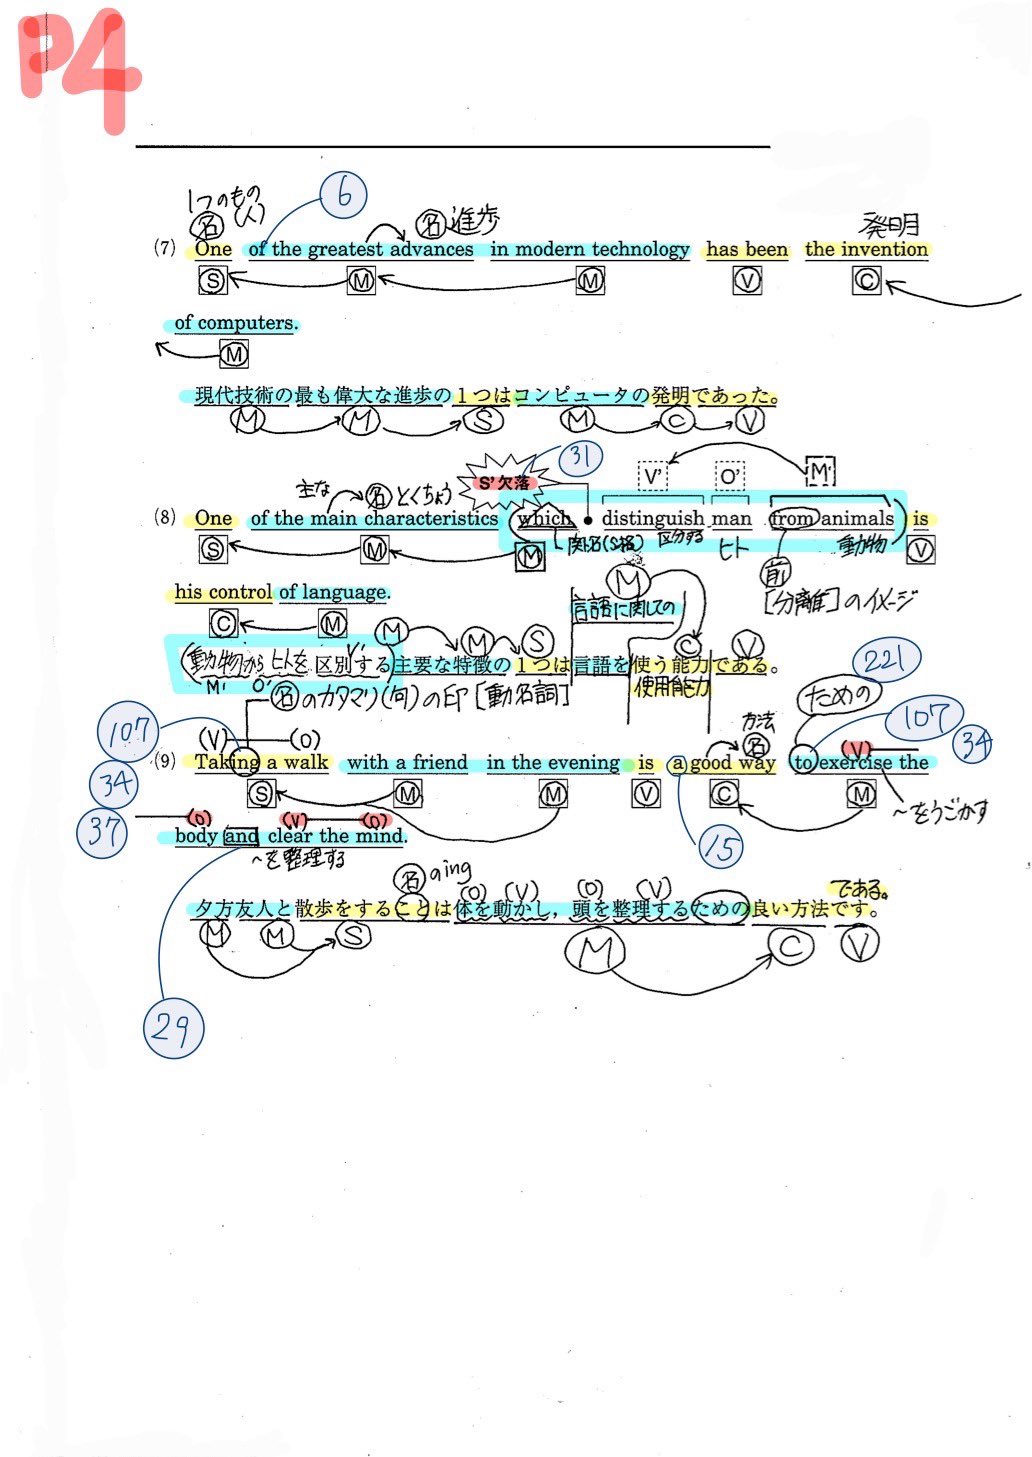 P4
1つのもの
(人)
6
名
名 進歩
発明
(7) One of the greatest advances in modern technology has been the invention
S M M V C
of computers.
M
現代技術の最も偉大な進歩の1つはコンピュータの発明であった。
M M S M C V
31
S'欠落
V' O' M'
主な 名 とくちょう
(8) One of the main characteristics (which ● distinguish man from animals) is
関・名(S格) 区分する ヒト 動物
S M M V
前
[分離]のイメージ
his control of language.
C M
M
言語に関しての
M M S C V
(動物からヒトを区別する)主要な特徴の1つは言語を使う能力である。
M' O' V'
使用能力
名のカタマリ(句)の印[動名詞]
221
ための
107
107
34
34
37
(V) (O)
方法
名
(V)
(9) Taking a walk with a friend in the evening is a good way to exercise the
S M M V C M
〜をうごかす
(O) (V) (O)
body and clear the mind.
〜を整理する
15
名 のing
(O) (V) (O) (V)
である。
夕方友人と散歩をすることは体を動かし，頭を整理するための良い方法です。
M M S M C V
29